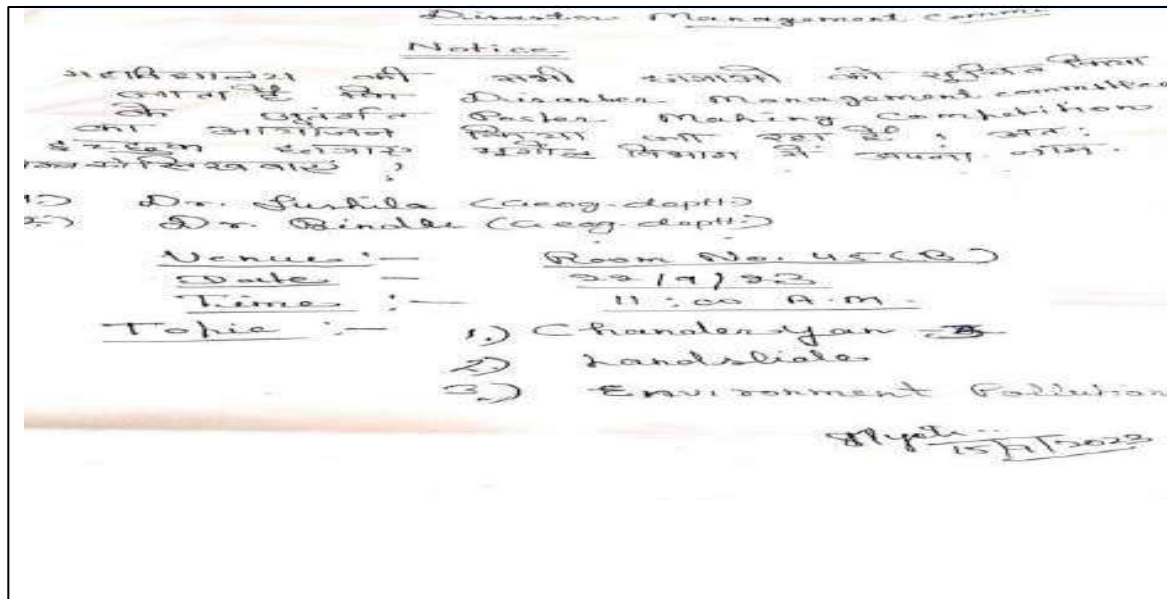 Disaster Management Commi
Notice
महाविद्यालय की सभी छात्राओं को सूचित किया
जाता है कि Disaster Management committee
के अंतर्गत Poster Making Competition
का आयोजन किया जा रहा है। अतः
इच्छुक छात्राएं भूगोल विभाग में अपना नाम
1.) Dr. Sushila (Geog. deptt.)
2.) Dr. (Geog. deptt.)
Venue :- Room No. 45 (B)
Date - 22/9/23
Time :- 11:00 A.M.
Topic :- 1.) Chander Yan -3
2.) Landslide
3.) Environment Pollution
15/9/2023